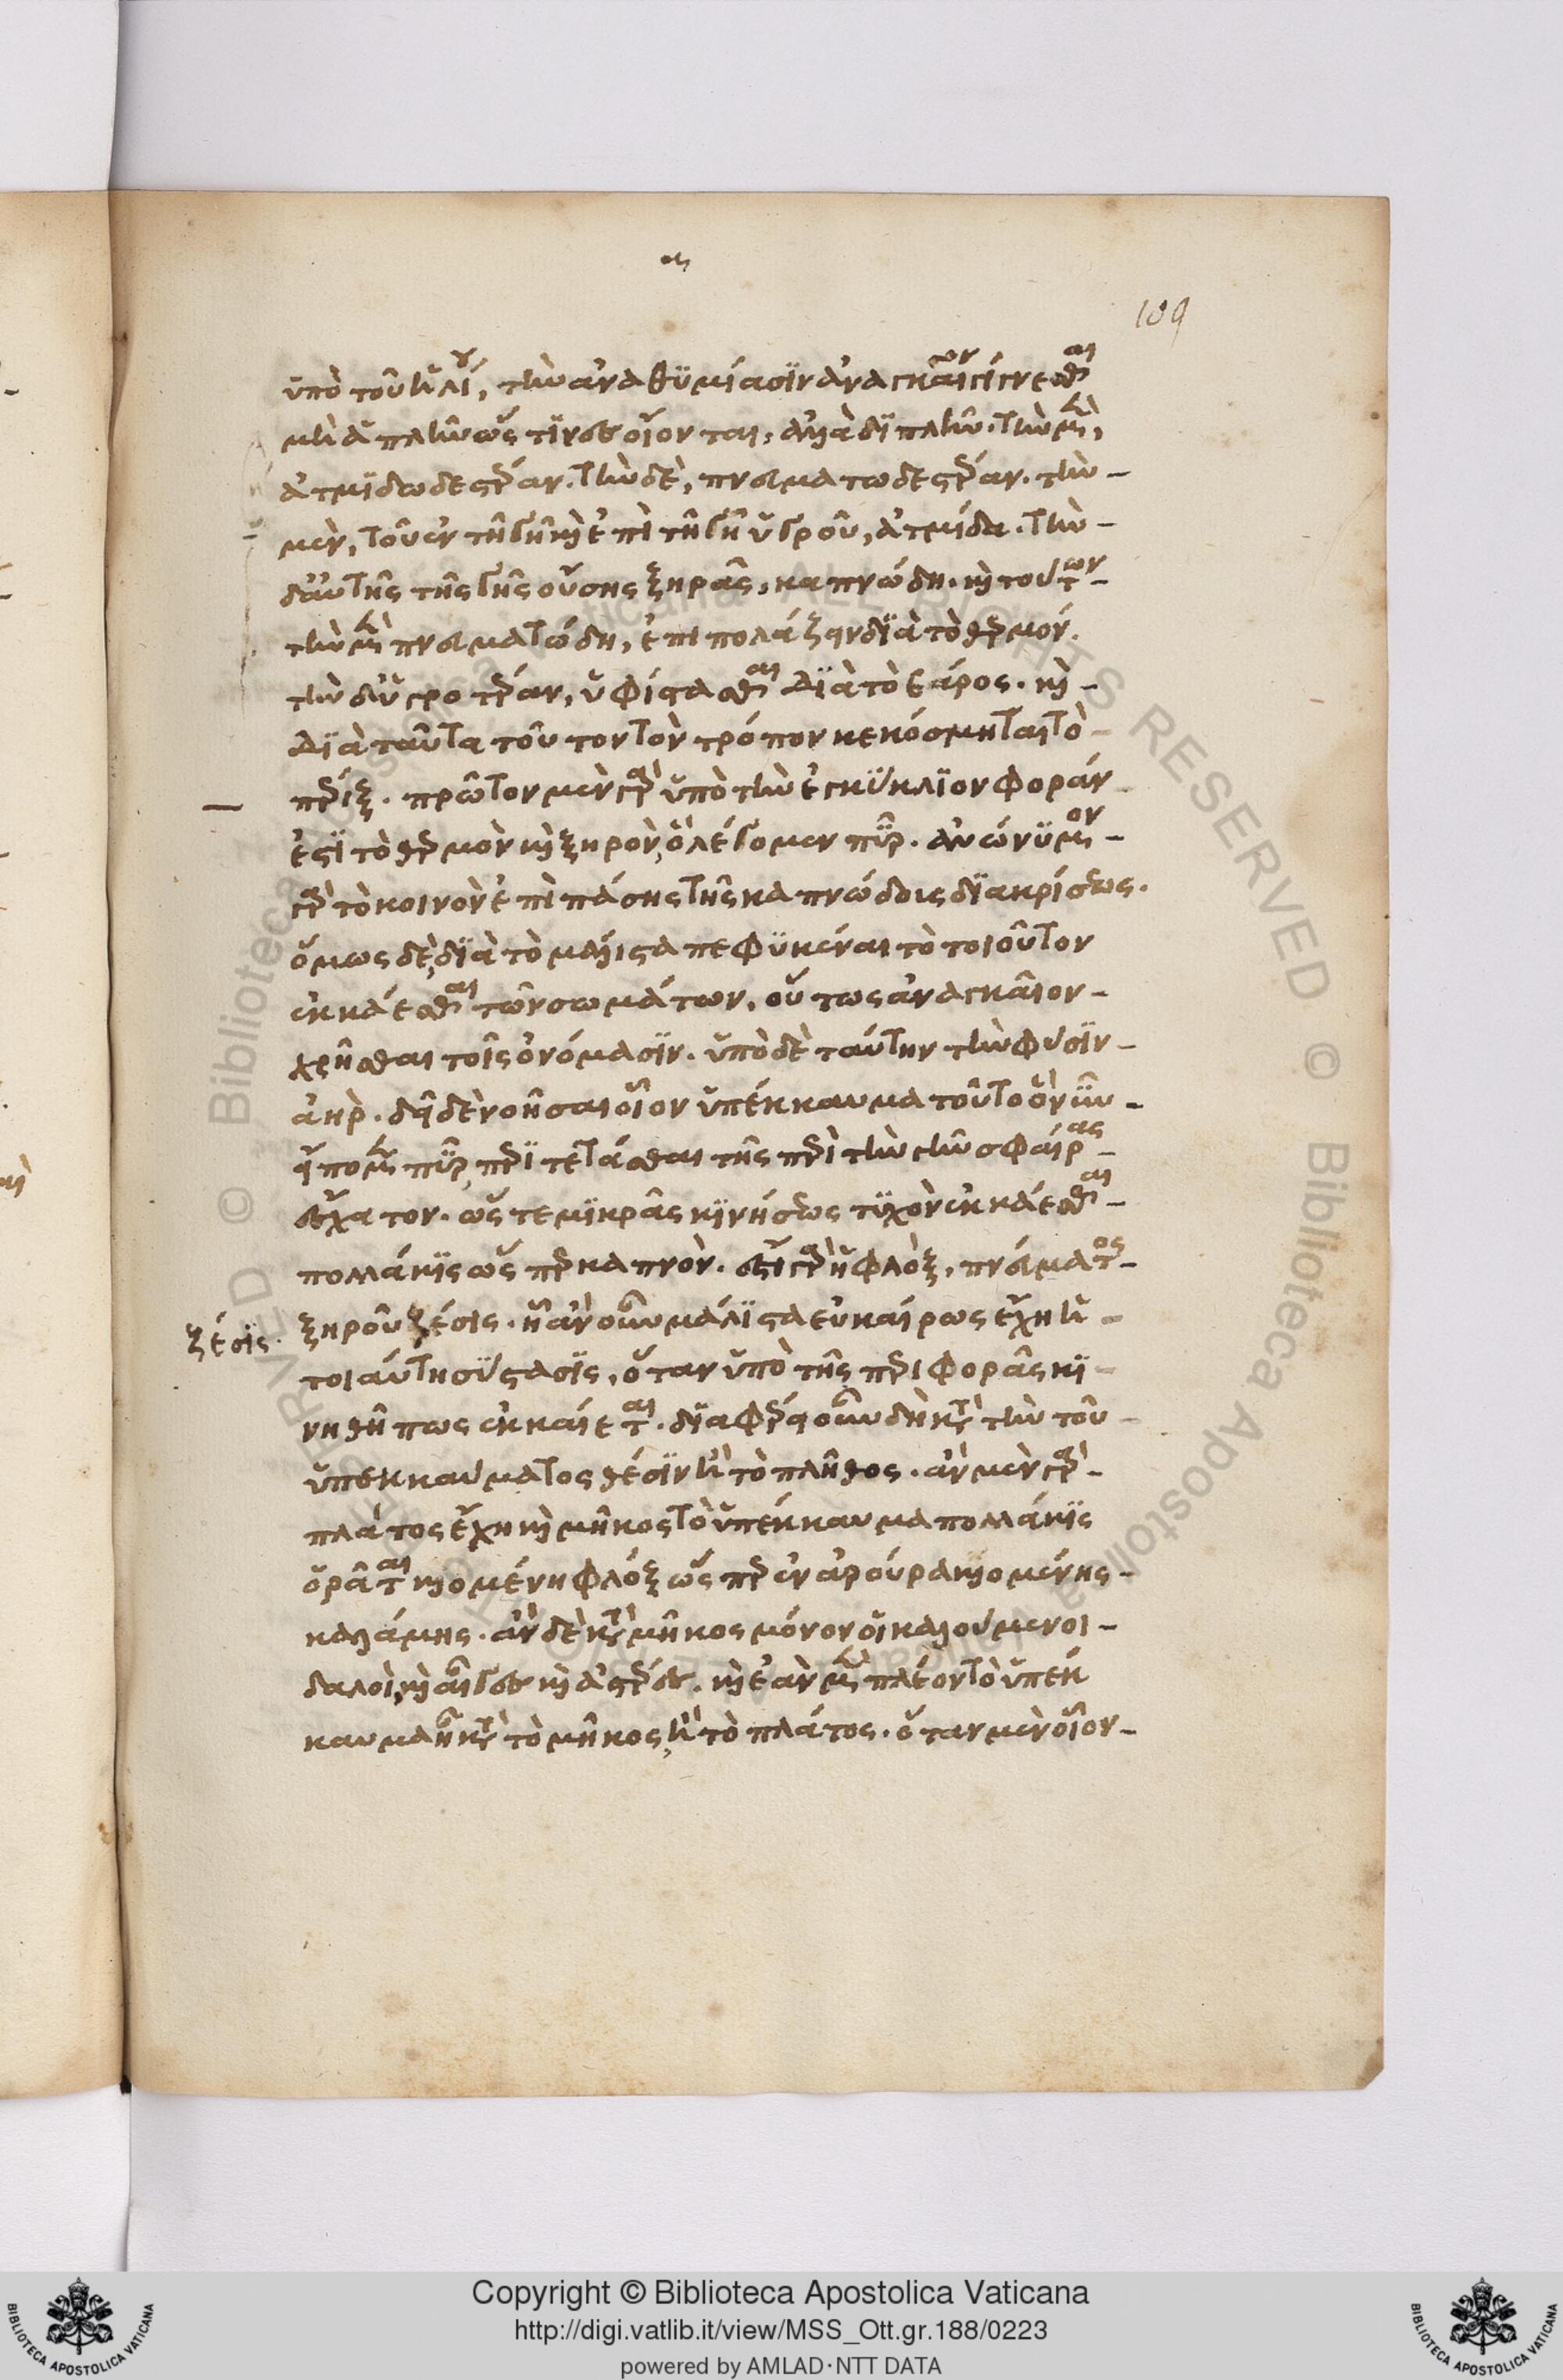 α
109
ὑπὸ τοῦ ἡλίου, τὴν ἀναθυμίασιν ἀναγκαῖον γίνεσθαι
μὴ ἁπλῆν ὥς τινες οἴονται, ἀλλὰ διπλῆν. τὴν μὲν,
ἀτμιδωδεστέραν. τὴν δὲ, πνευματωδεστέραν. τὴν
μὲν, τοῦ ἐν τῇ γῇ καὶ ἐπὶ τῇ γῇ ὑγροῦ, ἀτμίδα. τὴν
δ' αὐτῆς τῆς γῆς οὔσης ξηρᾶς, καπνώδη. καὶ τούτων
τὴν μὲν πνευματώδη, ἐπιπολάζειν διὰ τὸ θερμόν.
τὴν δ' ὑγροτέραν, ὑφίστασθαι διὰ τὸ βάρος. καὶ
διὰ ταῦτα τοῦτον τὸν τρόπον κεκόσμηται τὸ
πέριξ. πρῶτον μὲν γὰρ ὑπὸ τὴν ἐγκύκλιον φοράν
ἐστι τὸ θερμὸν καὶ ξηρὸν, ὃ λέγομεν πῦρ. ἀνώνυμον
γὰρ τὸ κοινὸν ἐπὶ πάσης τῆς καπνώδους διακρίσεως.
ὅμως δὲ, διὰ τὸ μάλιστα πεφυκέναι τὸ τοιοῦτον
ἐκκάεσθαι τῶν σωμάτων, οὕτως ἀναγκαῖον
χρῆσθαι τοῖς ὀνόμασιν. ὑπὸ δὲ ταύτην τὴν φύσιν
ἀήρ. δεῖ δὲ νοῆσαι οἷον ὑπέκκαυμα τοῦτο ὃ νῦν
εἴπομεν πῦρ, περιτετάσθαι τῆς περὶ τὴν γῆν σφαίρας
ἔσχατον. ὥστε μικρᾶς κινήσεως τυχὸν ἐκκάεσθαι
πολλάκις ὥσπερ καπνὸν. ἔστι γὰρ ἡ φλὸξ, πνεύματος
ξηροῦ ζέσις. ἧ ἂν οὖν μάλιστα εὐκαίρως ἔχη ἡ
ζέσις.
τοιαύτη σύστασις, ὅταν ὑπὸ τῆς περιφορᾶς κι
νηθῇ πως ἐκκάεται. διαφέρει οὖν δὴ κατὰ τὴν τοῦ
ὑπεκκαύματος θέσιν ἢ τὸ πλῆθος. ἂν μὲν γὰρ
πλάτος ἔχη καὶ μῆκος τὸ ὑπέκκαυμα πολλάκις
ὁρᾶται καιομένη φλόξ ὥσπερ ἐν ἀρούρα καιομένης
καλάμης. ἂν δὲ κατὰ μῆκος μόνον οἱ καλούμενοι
δαλοὶ, καὶ αἶγες καὶ ἀστέρες. καὶ ἐὰν μὲν πλέον τὸ ὑπέκ
καυμα ᾖ κατὰ τὸ μῆκος, ἢ τὸ πλάτος. ὅταν μὲν οἷον
Copyright © Biblioteca Apostolica Vaticana
http://digi.vatlib.it/view/MSS_Ott.gr.188/0223
powered by AMLAD·NTT DATA
BIBLIOTECA APOSTOLICA VATICANA
BIBLIOTECA APOSTOLICA VATICANA